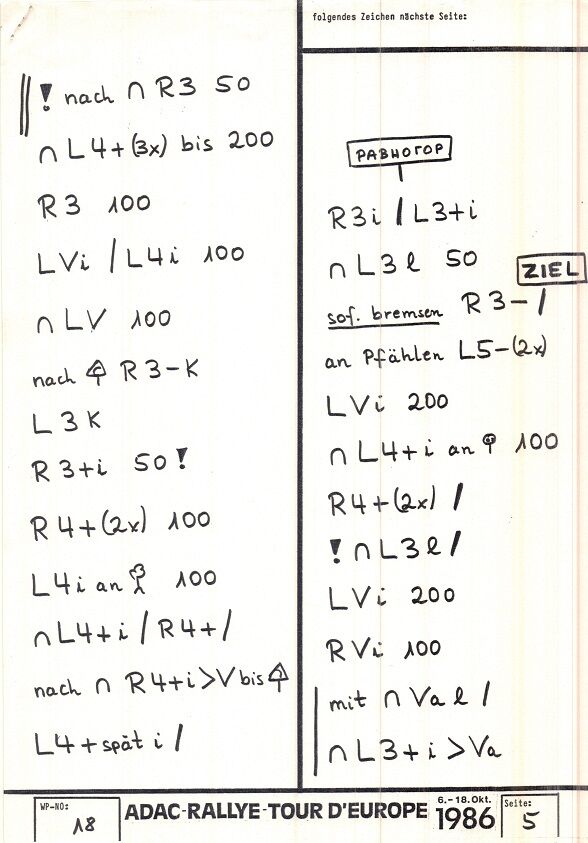 folgendes Zeichen nächste Seite:
! nach ∩ R3 50
∩ L4+(3x) bis 200
R3 100
LVi / L4i 100
∩ LV 100
nach R3-K
L3K
R3+i 50!
R4+(2x) 100
L4i an 100
∩ L4+i / R4+/
nach ∩ R4+i>V bis
L4+spät i /
РАВНОГОР
R3i / L3+i
∩ L3l 50
ZIEL
sof. bremsen R3-/
an Pfählen L5-(2x)
LVi 200
∩ L4+i an 100
R4+(2x) /
! ∩ L3l /
LVi 200
RVi 100
mit ∩ Va l /
∩ L3+i >Va
WP-NO: 18
ADAC-RALLYE-TOUR D'EUROPE
6.-18.Okt. 1986
Seite: 5